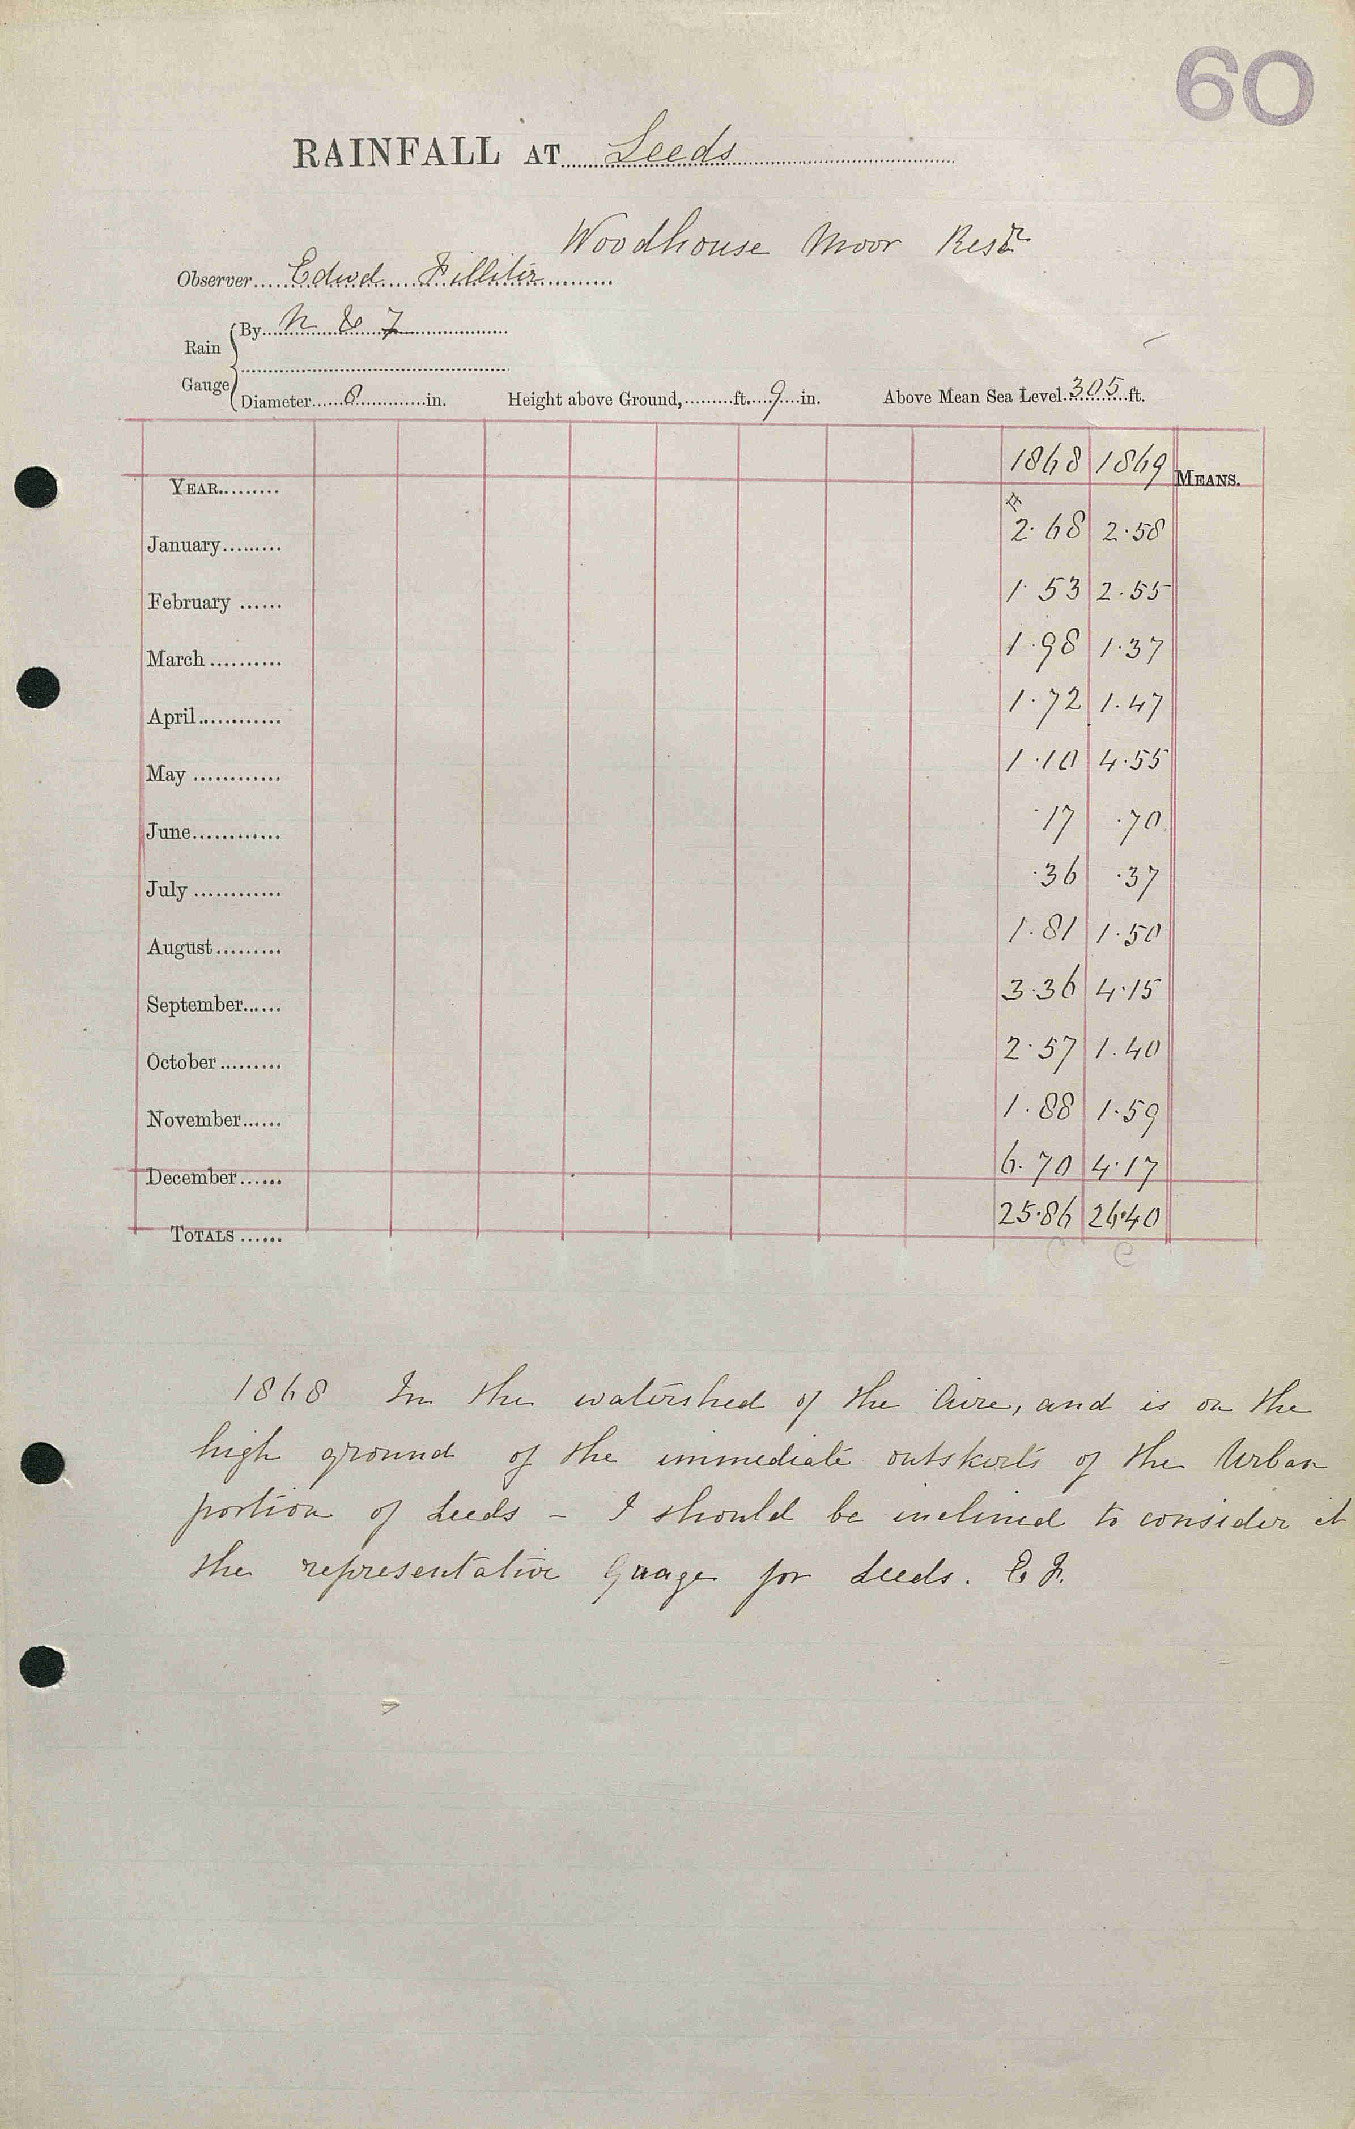 60
RAINFALL AT Leeds
Woodhouse Moor Resr
Observer Edwd Filliter
Rain Gauge
By N & Z
Diameter 8 in. Height above Ground, ft. 9 in. Above Mean Sea Level 305 ft.
YEAR 1868 1869 MEANS.
January 2.68 2.58
February 1.53 2.55
March 1.98 1.37
April 1.72 1.47
May 1.10 4.55
June .17 .70
July .36 .37
August 1.81 1.50
September 3.36 4.15
October 2.57 1.40
November 1.88 1.59
December 6.70 4.17
TOTALS 25.86 26.40
C C
1868 In the watershed of the Aire, and is on the
high ground of the immediate outskirts of the Urban
portion of Leeds - I should be inclined to consider it
the representative Guage for Leeds. E F.